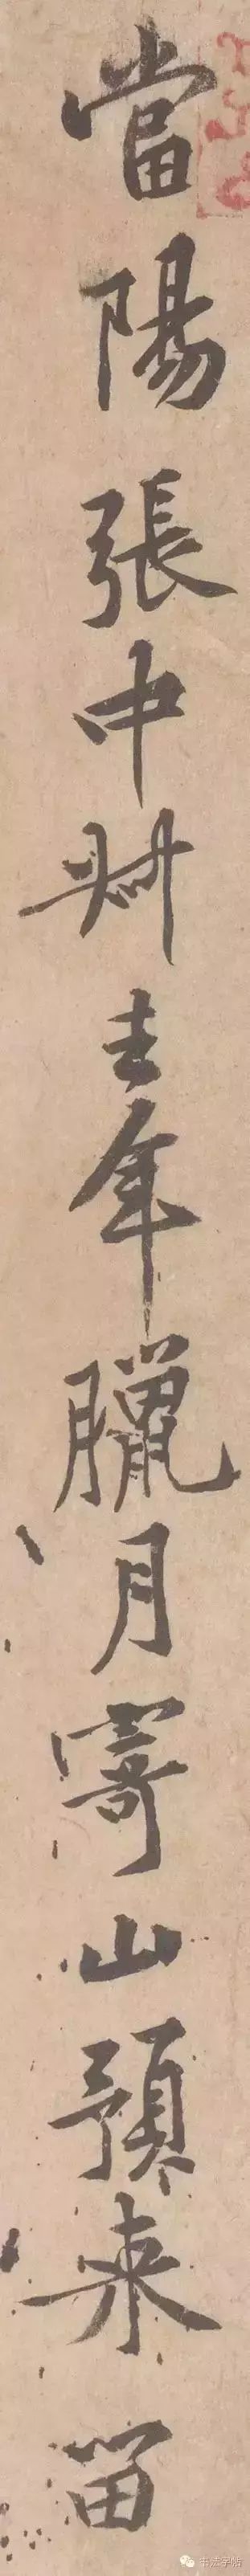 當陽張中叔去年臘月寄山預来留
书法字帖